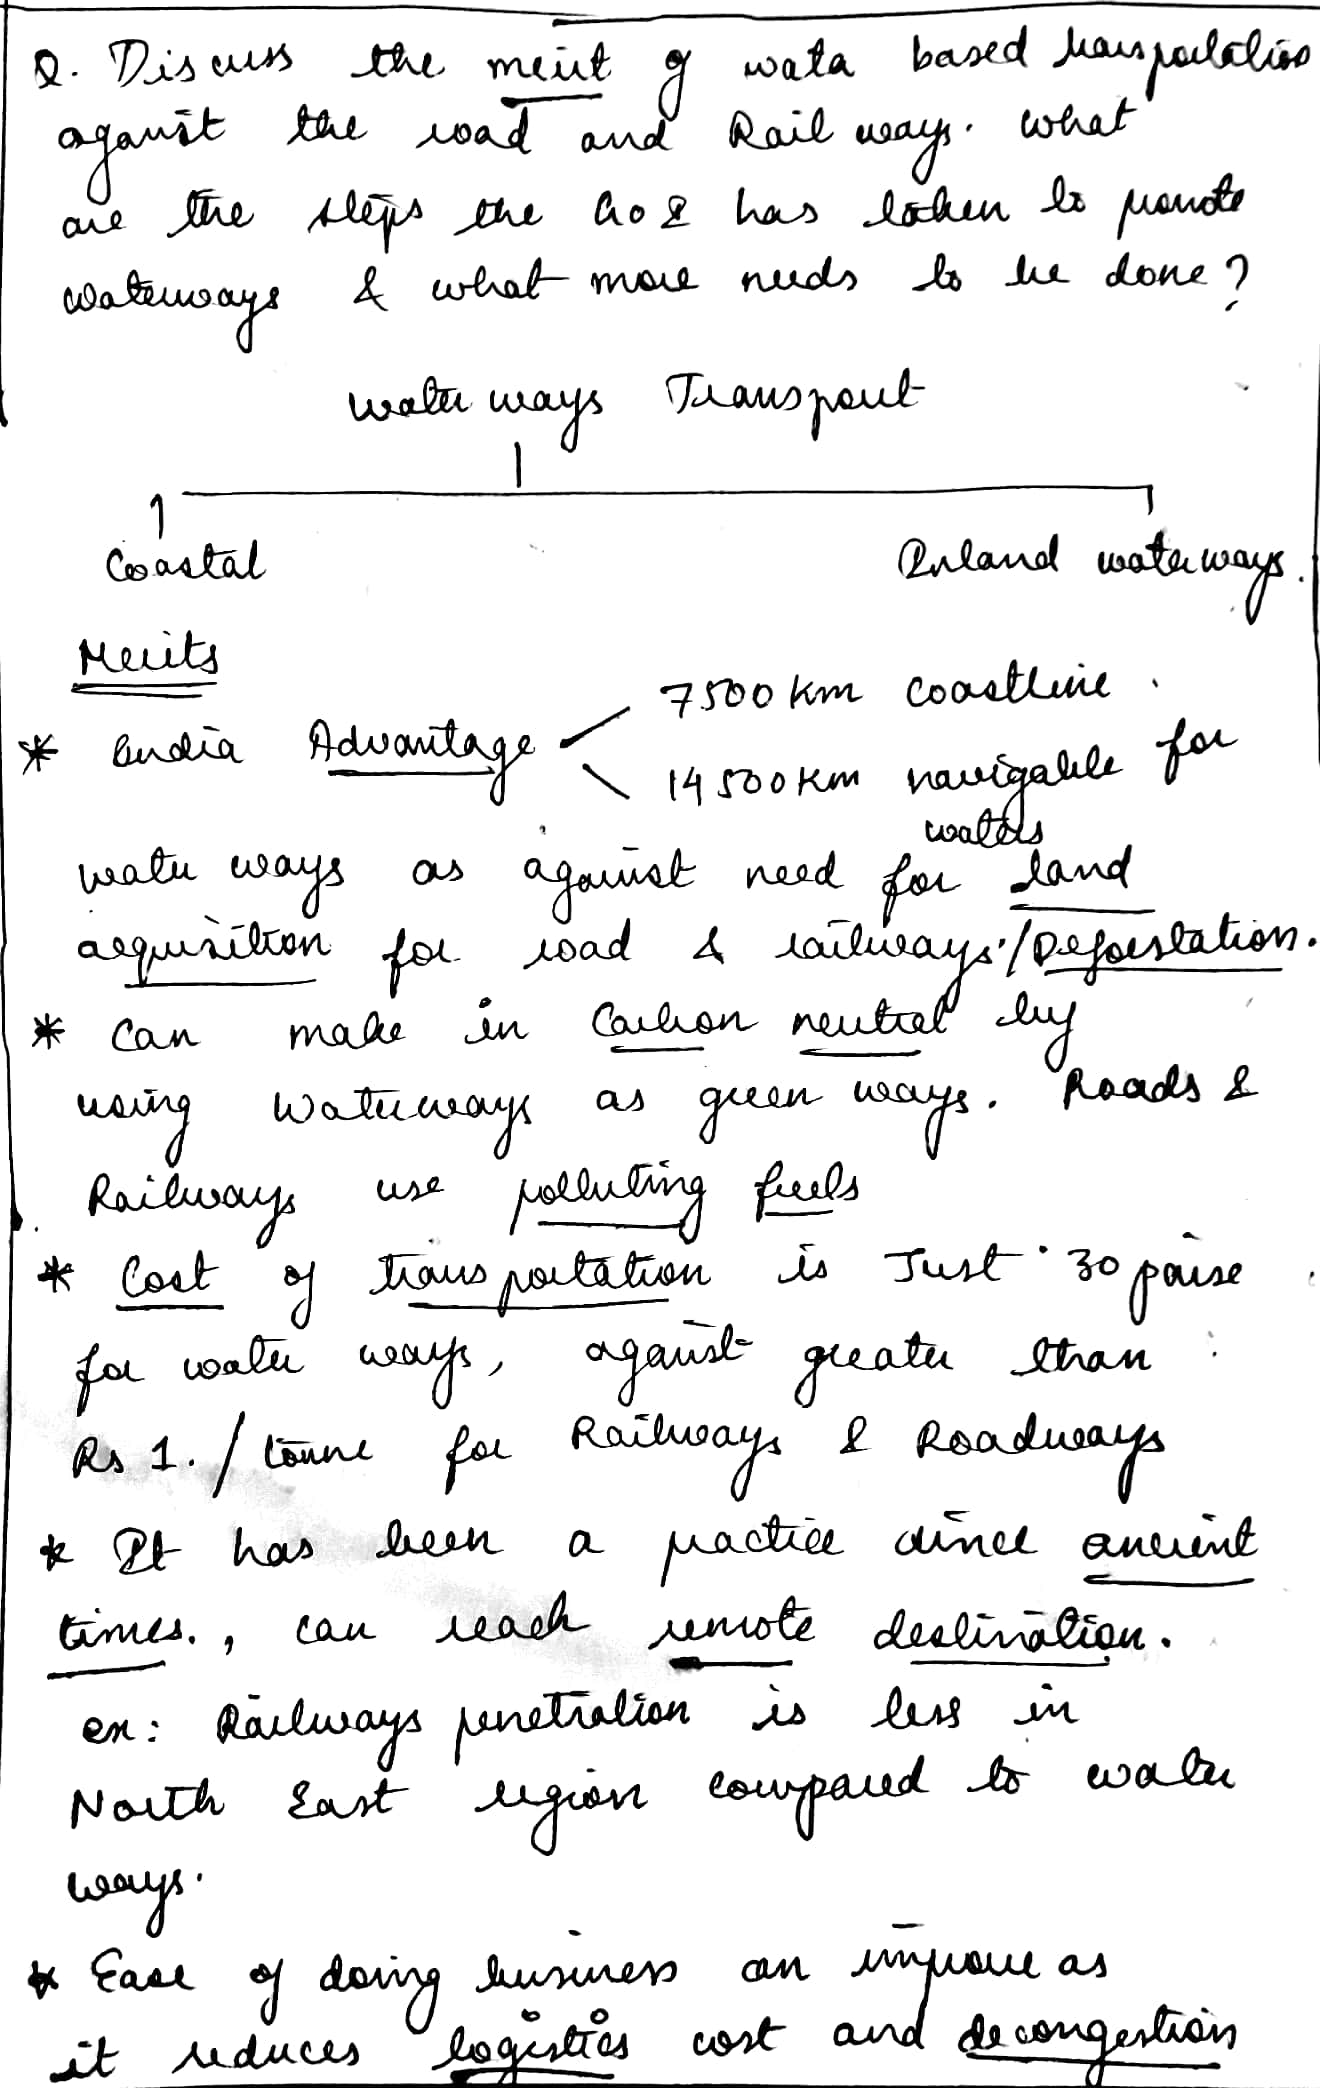 Q. Discuss the merit of water based transportation
against the road and Rail ways. What
are the steps the GoI has taken to promote
waterways & what more needs to be done?
water ways Transport
Coastal Inland waterways.
Merits
* India Advantage 7500 km coastline.
14500 km navigable for
waters
water ways as against need for land
acquisition for road & railways/Deforestation.
* Can make in Carbon neutral by
using waterways as green ways. Roads &
Railways use polluting fuels
* Cost of transportation is Just 30 paise
for water ways, against greater than
Rs 1./tonne for Railways & Roadways
* It has been a practice since ancient
times., can reach remote destination.
ex: Railways penetration is less in
North East region compared to water
ways.
* Ease of doing business can improve as
it reduces logistics cost and decongestion